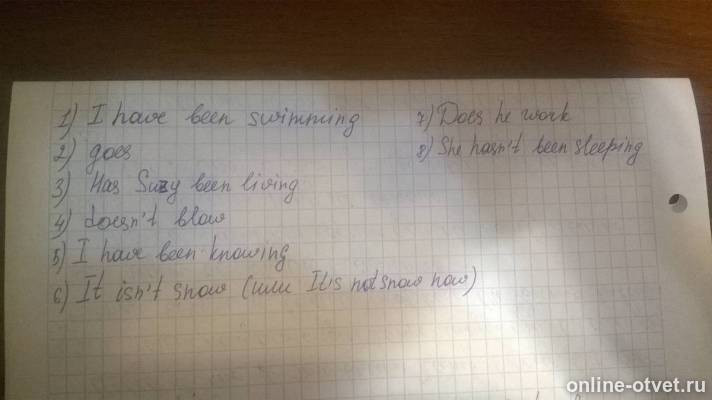 1) I have been swimming
2) goes
3) Has Suzy been living
4) doesn't blow
5) I have been knowing
6) It isn't snow (или It's not snow now)
7) Does he work
8) She hasn't been sleeping
online-otvet.ru